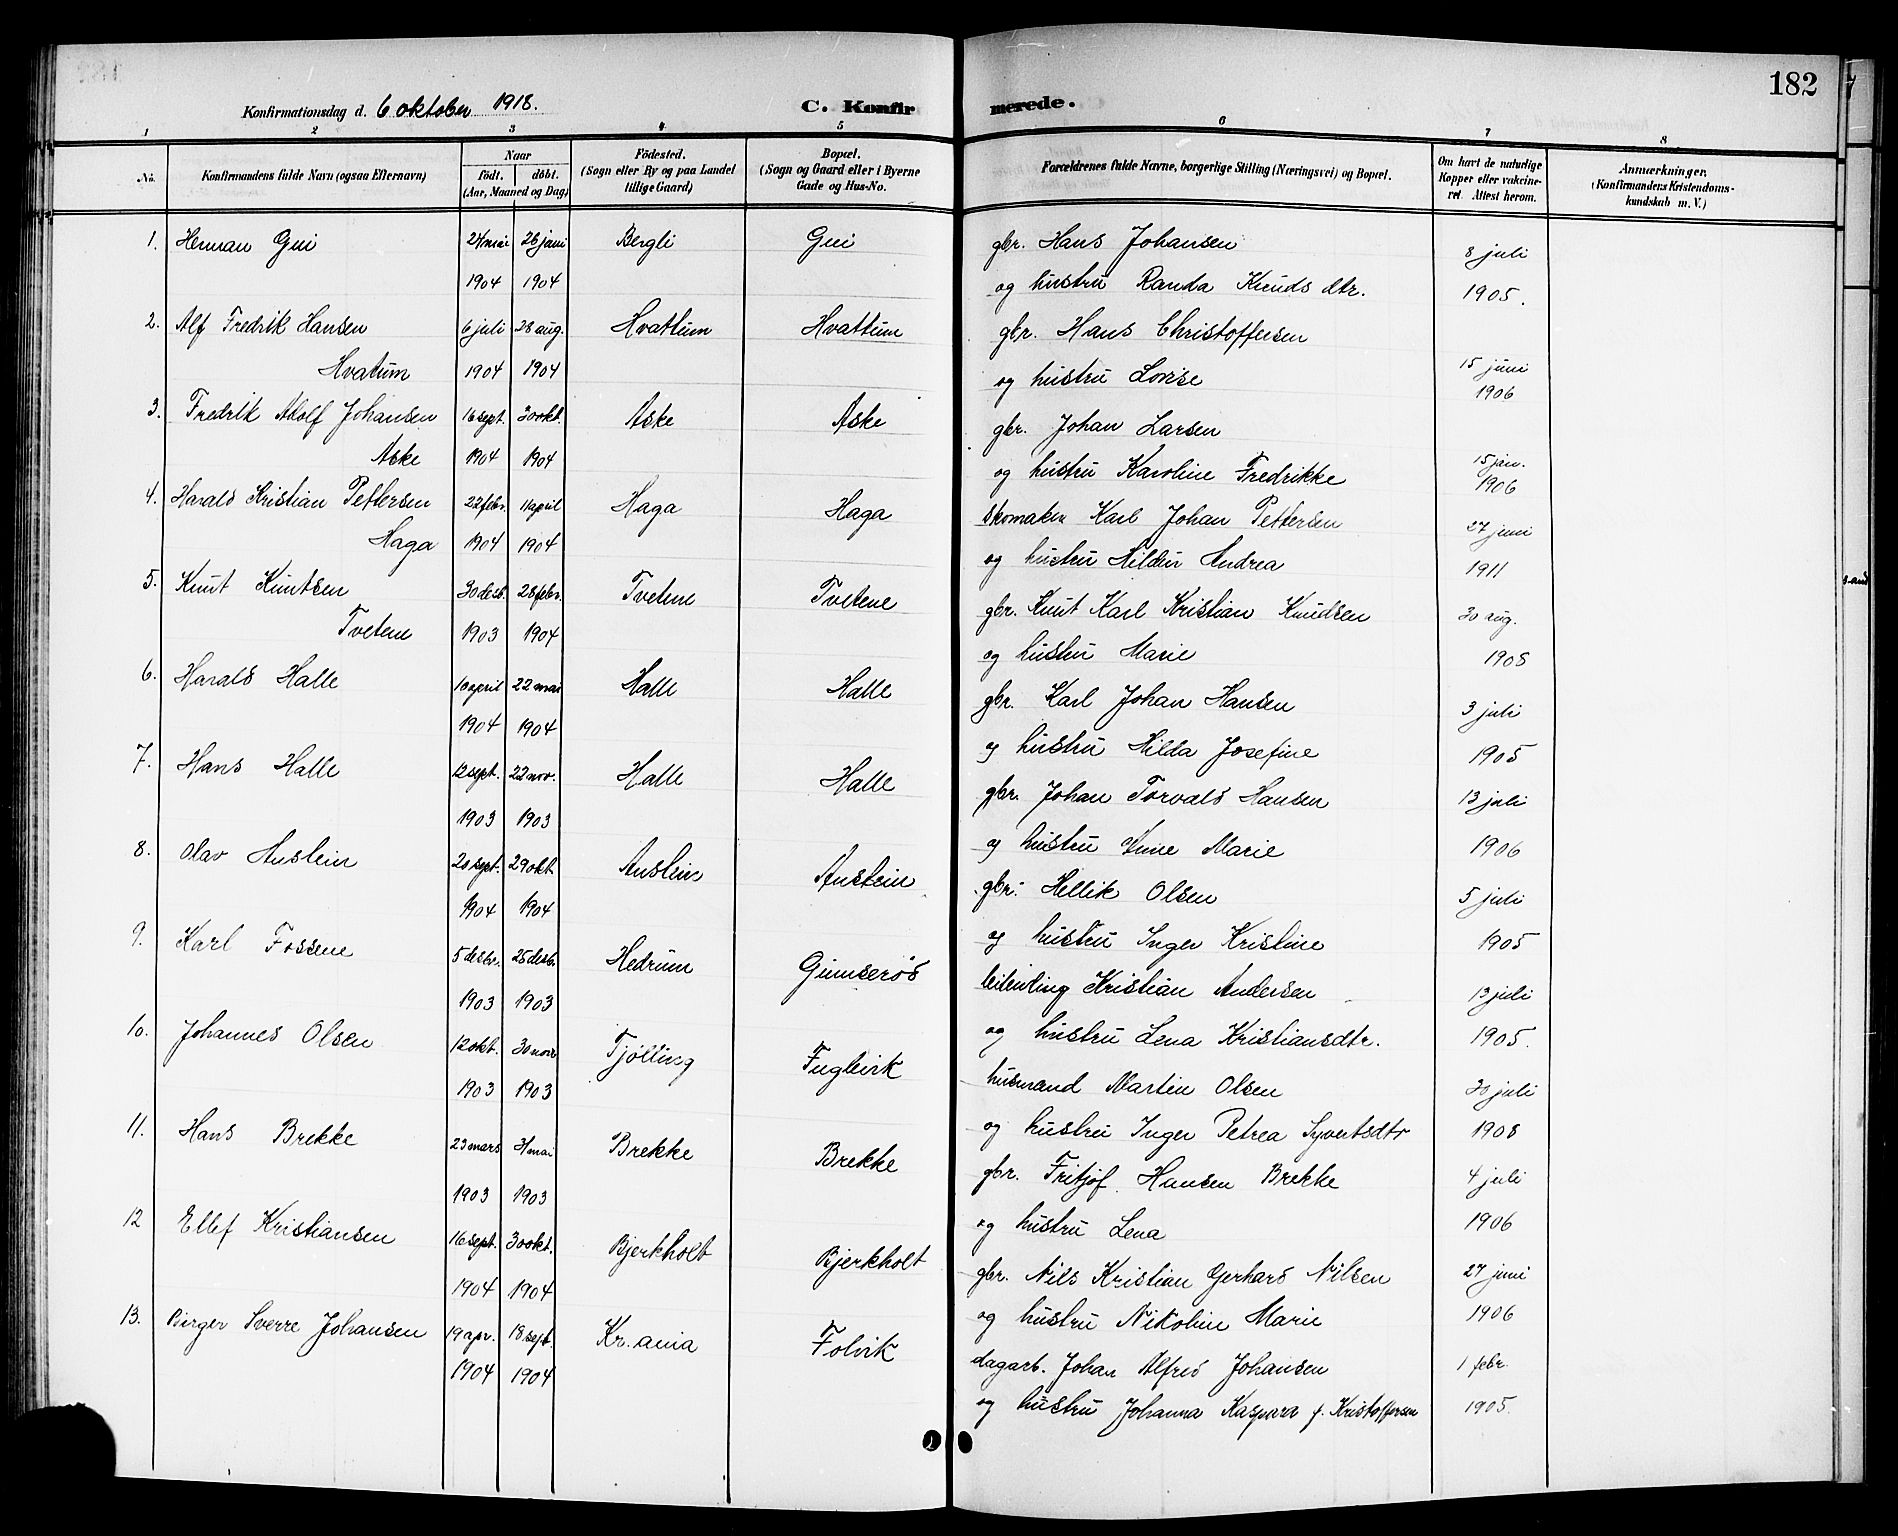 182
Konfirmationsdag d. 6 oktober 1918.
C. Konfirmerede.
1 2 3 4 5 6 7 8
No. Konfirmandens fulde Navn (ogsaa Efternavn) Naar födt. döbt. (Aar, Maaned og Dag) Födested. (Sogn eller By og paa Landet tillige Gaard) Bopæl. (Sogn og Gaard eller i Byerne Gade og Hus-No. Forældrenes fulde Navne, borgerlige Stilling (Næringsvei) og Bopæl. Om havt de naturlige Kopper eller vakcineret. Attest herom. Anmærkninger. (Konfirmandens Kristendomskundskab m. V.)
1. Herman Gui 24 mai 26 juni Bergli Gui gbr. Hans Johansen 8 juli
1904 1904 og hustru Randa Knuds dtr. 1905.
2. Alf Fredrik Hansen 6 juli 28 aug. Hvattum Hvattum gbr. Hans Christoffersen
Hvatum 1904 1904 og hustru Lovise 15 juni 1906
3. Fredrik Adolf Johansen 16 sept. 30 okt. Aske Aske gbr. Johan Larsen
Aske 1904 1904 og hustru Karoline Fredrikke 15 jan. 1906
4. Harald Kristian Pettersen 22 febr. 11 april Haga Haga skomaker Karl Johan Pettersen 27 juni
Haga 1904 1904 og hustru Hildur Andrea 1911
5. Knut Knutsen 30 desb. 28 febr. Tvetene Tvetene gbr. Knut Karl Kristian Knudsen 30 aug.
Tvetene 1903 1904 og hustru Marie 1905
6. Harald Halle 10 april 22 mai Halle Halle gbr. Karl Johan Hansen 3 juli
1904 1904 og hustru Hilda Josefine 1905
7. Hans Halle 12 sept. 22 nov. Halle Halle gbr. Johan Torvald Hansen 13 juli
1903 1903 og hustru Anne Marie 1906
8. Olav Austein 20 sept. 29 okt Austein Austein gbr. Hellik Olsen 5 juli
1904 1904 og hustru Inger Kristine 1905
9. Karl Fossene 5 desbr. 25 desbr. Hedrum Gumserød leilending Kristian Andersen 13 juli
1903 1903 og hustru Lena Kristiansdtr. 1905.
10. Johannes Olsen 12 okt. 30 novr Tjølling Fuglevik husmand Martin Olsen 20 juli
1903 1903 og hustru Inger Petrea Syvertsdtr 1908
11. Hans Brekke 23 mars mai Brekke Brekke gbr. Fritjof Hansen Brekke 4 juli
1903 1903 og hustru Lena 1906
12 Ellef Kristiansen 16 sept. 30 okt. Bjerkholt Bjerkholt gbr. Nils Kristian Gerhard Nilsen 27 juni
1904 1904 og hustru Nikoline Marie 1906
13. Birger Sverre Johansen 19 apr. 18 sept. Kr.ania Folvik dagarb. Johan Alfred Johansen 1 febr.
1904 1904 og hustru Johanna Kaspara f. Kristoffersen 1905.